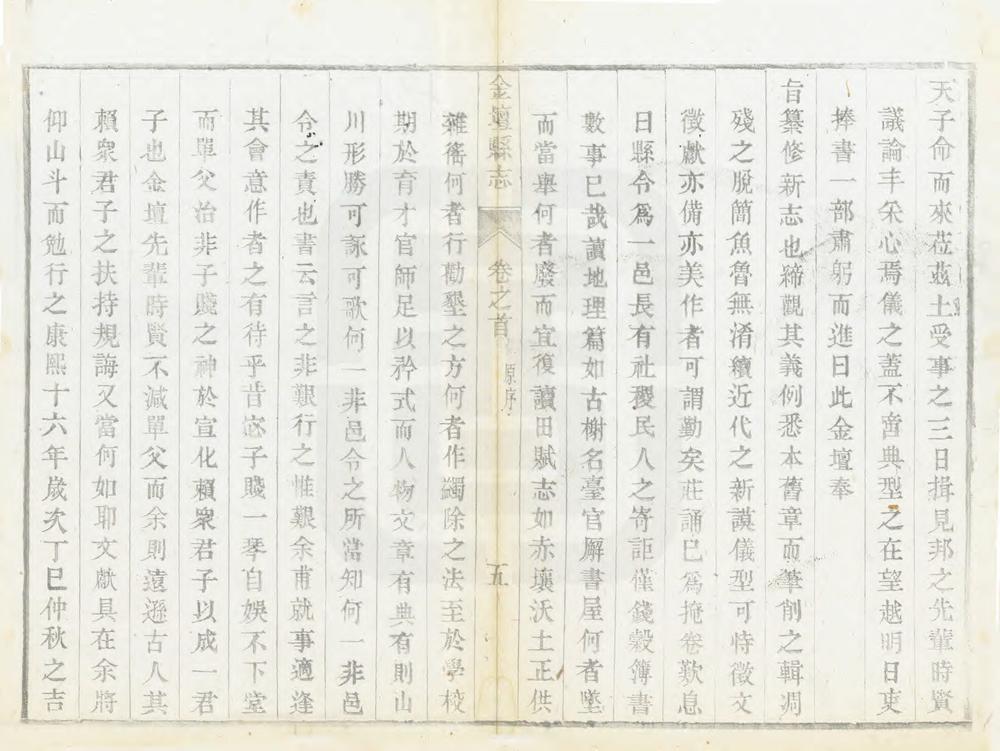 天子命而來蒞茲土受事之三日揖見邦之先輩時賢
議論丰采心焉儀之蓋不啻典型之在望越明日吏
捧書一部肅躬而進曰此金壇奉
旨纂修新志也締觀其義例悉本舊章而筆削之輯凋
殘之脫簡魚魯無淆續近代之新謨儀型可恃徵文
徵獻亦備亦美作者可謂勤矣莊誦已爲掩卷歎息
曰縣令爲一邑長有社稷民人之寄詎僅錢穀簿書
數事已哉讀地理篇如古榭名臺官廨書屋何者墜
而當舉何者廢而宜復讀田賦志如赤壤沃土正供
金壇縣志 卷之首 原序 五
雜徭何者行勸墾之方何者作蠲除之法至於學校
期於育才官師足以矜式而人物文章有典有則山
川形勝可詠可歌何一非邑令之所當知何一非邑
令之責也書云言之非艱行之惟艱余甫就事適逢
其會意作者之有待乎昔宓子賤一琴自娛不下堂
而單父治非子賤之神於宣化賴衆君子以成一君
子也金壇先輩時賢不減單父而余則遠遜古人其
賴衆君子之扶持規誨又當何如耶文獻具在余將
仰山斗而勉行之康熙十六年歲次丁巳仲秋之吉